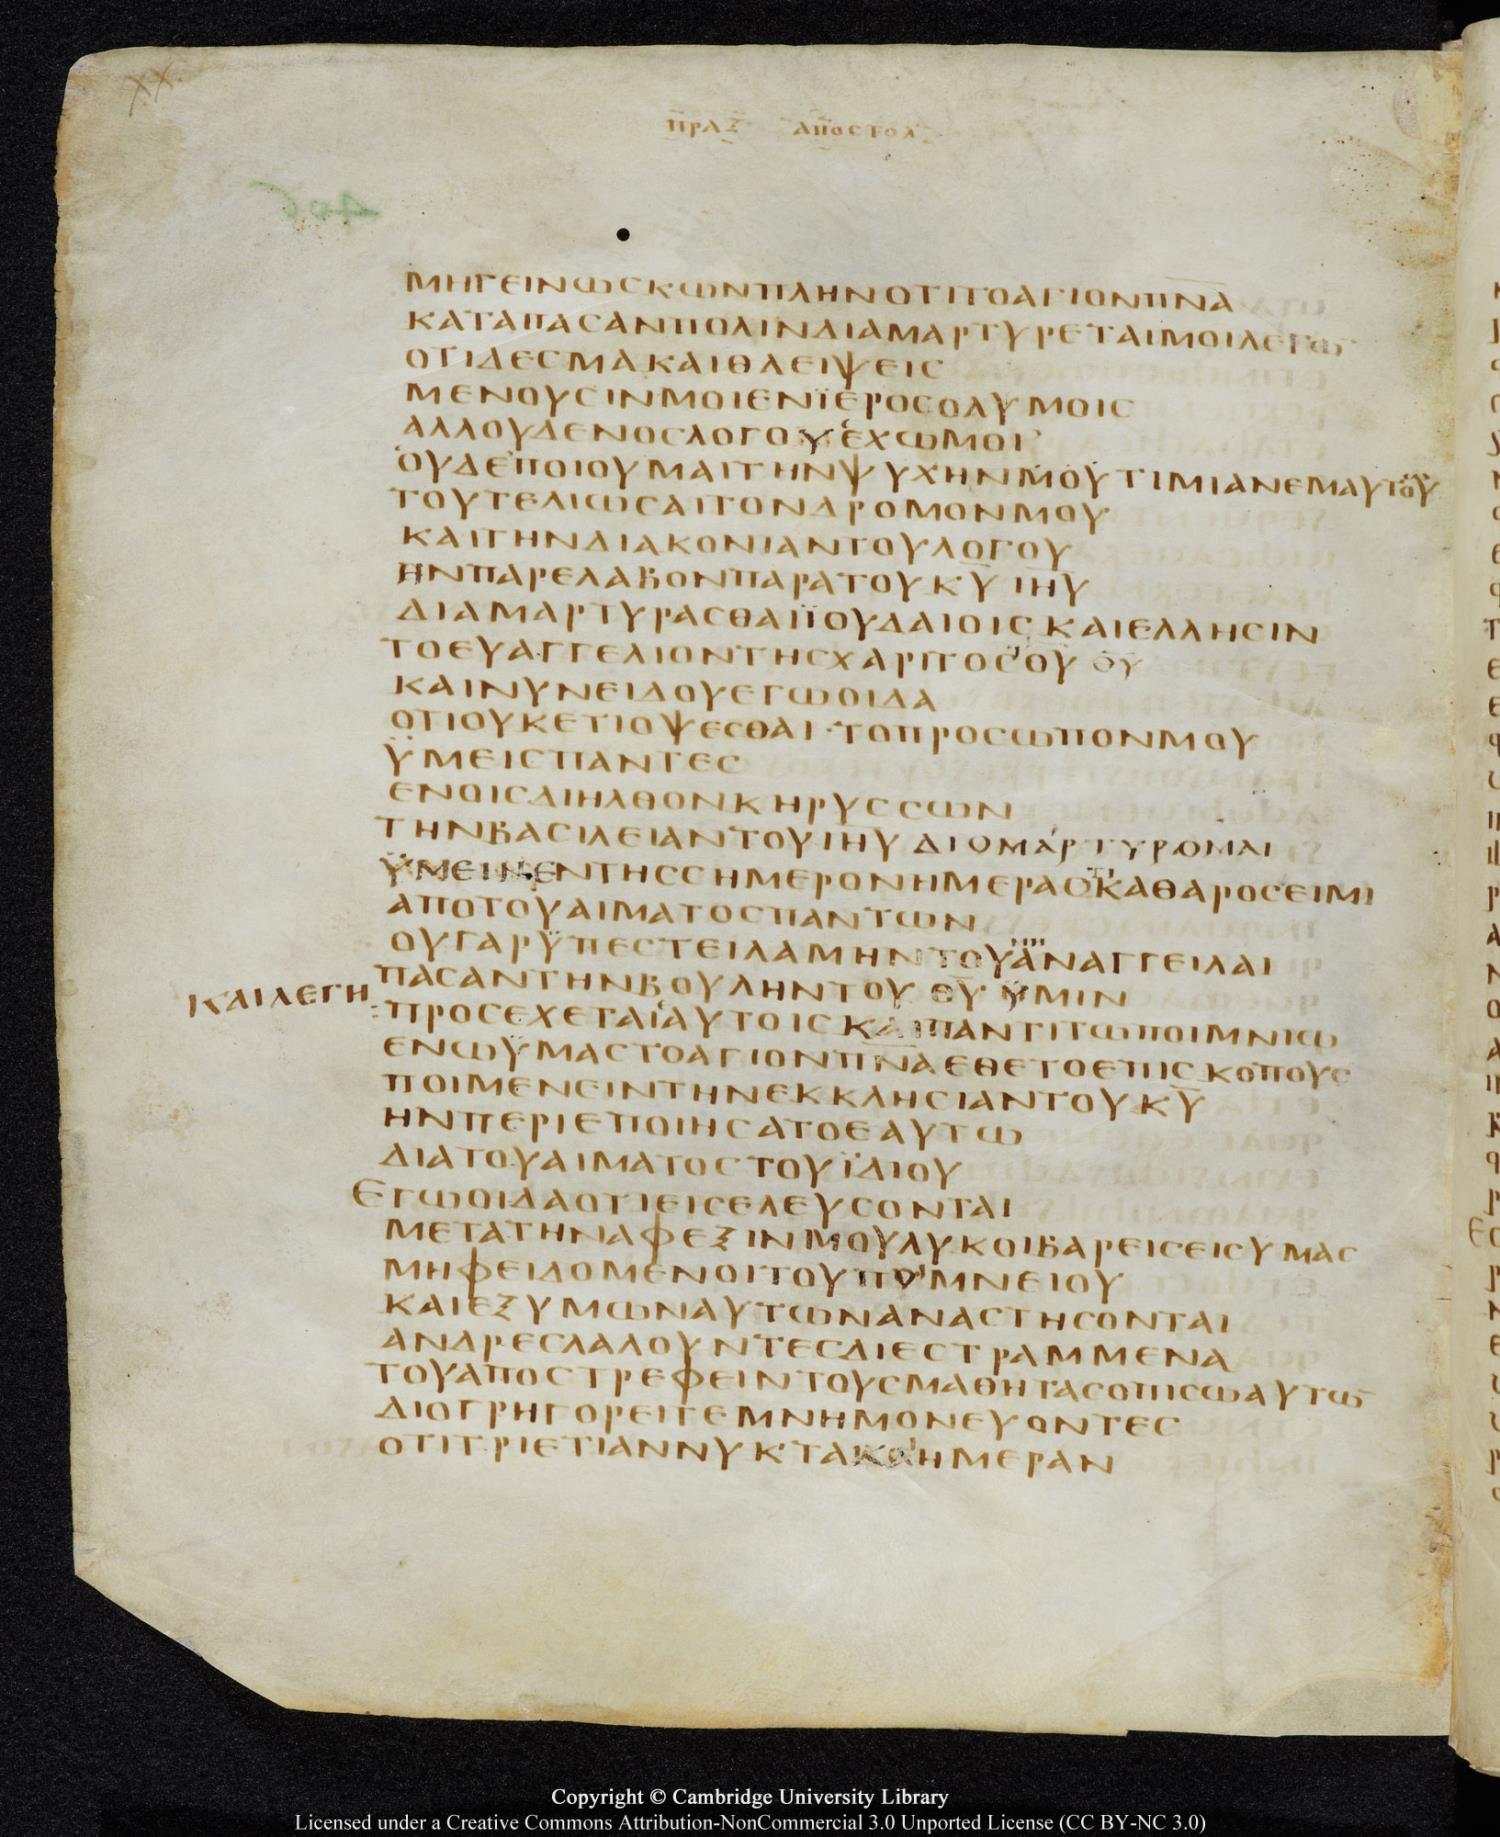 XX
ΠΡΑΞ ΑΠΟΣΤΟΛ
406
ΜΗΓΕΙΝΩϹΚΩΝΠΛΗΝΟΤΙΤΟΑΓΙΟΝΠΝΑ
ΚΑΤΑΠΑϹΑΝΠΟΛΙΝΔΙΑΜΑΡΤΥΡΕΤΑΙΜΟΙΛΕΓΩ
ΟΤΙΔΕϹΜΑΚΑΙΘΛΕΙΨΕΙϹ
ΜΕΝΟΥϹΙΝΜΟΙΕΝΪΕΡΟϹΟΛΥΜΟΙϹ
ΑΛΛΟΥΔΕΝΟϹΛΟΓΟΥΕΧΩΜΟΙ
ΟΥΔΕΠΟΙΟΥΜΑΙΤΗΝΨΥΧΗΝΜΟΥΤΙΜΙΑΝΕΜΑΥΤΟΥ
ΤΟΥΤΕΛΙΩϹΑΙΤΟΝΔΡΟΜΟΝΜΟΥ
ΚΑΙΤΗΝΔΙΑΚΟΝΙΑΝΤΟΥΛΟΓΟΥ
ΗΝΠΑΡΕΛΑΒΟΝΠΑΡΑΤΟΥΚΥ ΙΗΥ
ΔΙΑΜΑΡΤΥΡΑϹΘΑΙΪΟΥΔΑΙΟΙϹ ΚΑΙΕΛΛΗϹΙΝ
ΤΟΕΥΑΓΓΕΛΙΟΝΤΗϹΧΑΡΙΤΟϹΟΥ ΘΥ
ΚΑΙΝΥΝΕΙΔΟΥΕΓΩΟΙΔΑ
ΟΤΙΟΥΚΕΤΙΟΨΕϹΘΑΙ·ΤΟΠΡΟϹΩΠΟΝΜΟΥ
ΫΜΕΙϹΠΑΝΤΕϹ
ΕΝΟΙϹΔΙΗΛΘΟΝΚΗΡΥϹϹΩΝ
ΤΗΝΒΑϹΙΛΕΙΑΝΤΟΥΙΗΥ ΔΙΟΜΑΡΤΥΡΟΜΑΙ
ΫΜΕΙΝΕΝΤΗϹϹΗΜΕΡΟΝΗΜΕΡΑΟΚΑΘΑΡΟϹΕΙΜΙ
ΑΠΟΤΟΥΑΙΜΑΤΟϹΠΑΝΤΩΝ
ΟΥΓΑΡΫΠΕϹΤΕΙΛΑΜΗΝΤΟΥΑΝΑΓΓΕΙΛΑΙ
ΠΑϹΑΝΤΗΝΒΟΥΛΗΝΤΟΥ ΘΥ ΫΜΙΝ
ΚΑΙΛΕΓΗ
ΠΡΟϹΕΧΕΤΑΙΑΥΤΟΙϹΚΑΙΠΑΝΤΙΤΩΠΟΙΜΝΙΩ
ΕΝΩΫΜΑϹΤΟΑΓΙΟΝΠΝΑΕΘΕΤΟΕΠΙϹΚΟΠΟΥϹ
ΠΟΙΜΕΝΕΙΝΤΗΝΕΚΚΛΗϹΙΑΝΤΟΥΚΥ
ΗΝΠΕΡΙΕΠΟΙΗϹΑΤΟΕΑΥΤΩ
ΔΙΑΤΟΥΑΙΜΑΤΟϹΤΟΥΪΔΙΟΥ
ΕΓΩΟΙΔΑΟΤΙΕΙϹΕΛΕΥϹΟΝΤΑΙ
ΜΕΤΑΤΗΝΑΦΕΞΙΝΜΟΥΛΥΚΟΙΒΑΡΕΙϹΕΙϹΥΜΑϹ
ΜΗΦΕΙΔΟΜΕΝΟΙΤΟΥΠΟΙΜΝΕΙΟΥ
ΚΑΙΕΞΥΜΩΝΑΥΤΩΝΑΝΑϹΤΗϹΟΝΤΑΙ
ΑΝΔΡΕϹΛΑΛΟΥΝΤΕϹΔΙΕϹΤΡΑΜΜΕΝΑ
ΤΟΥΑΠΟϹΤΡΕΦΕΙΝΤΟΥϹΜΑΘΗΤΑϹΟΠΙϹΩΑΥΤΩ
ΔΙΟΓΡΗΓΟΡΕΙΤΕΜΝΗΜΟΝΕΥΟΝΤΕϹ
ΟΤΙΤΡΙΕΤΙΑΝΝΥΚΤΑΚΑΙΗΜΕΡΑΝ
Copyright © Cambridge University Library
Licensed under a Creative Commons Attribution-NonCommercial 3.0 Unported License (CC BY-NC 3.0)